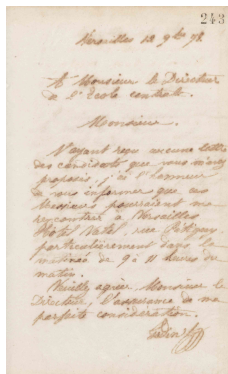 243
Versailles 12 9bre 78
A Monsieur le Directeur
de l'Ecole centrale.
Monsieur.
N'ayant reçu aucune lettre
des candidats que vous m'avez
proposés, j'ai l'honneur
de vous informer que ces
Messieurs pourraient me
rencontrer à Versailles
Hôtel Vatel, rue
particulièrement dans la
matinée de 9 à 11 heures du
matin.
Veuillez agréer Monsieur le
Directeur, l'assurance de ma
parfaite considération.